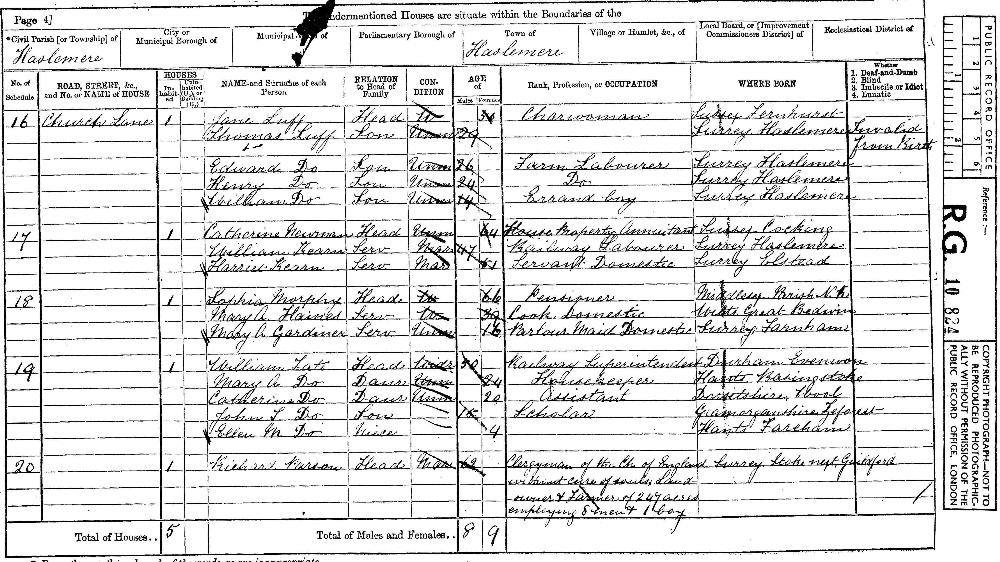 Page 4]
The undermentioned Houses are situate within the Boundaries of the
*Civil Parish [or Township] of
Haslemere
City or Municipal Borough of
Municipal
Parliamentary Borough of
Town of
Haslemere
Village or Hamlet, &c., of
Local Board, or [Improvement Commissioners District] of
Ecclesiastical District of
No. of Schedule
ROAD, STREET, &c., and No. or NAME of HOUSE
HOUSES
Inhabited
Uninhabited (U.) or Building (B.)
NAME and Surname of each Person
RELATION to Head of Family
CONDITION
AGE of
Males Females
Rank, Profession, or OCCUPATION
WHERE BORN
Whether
1. Deaf-and-Dumb
2. Blind
3. Imbecile or Idiot
4. Lunatic
16 Church Lane 1 Jane Luff Head W Charwoman Sussex Fernhurst
Thomas Luff Son Unm 29 Surrey Haslemere Invalid from Birth
Edward Do Son Unm 26 Farm Labourer Surrey Haslemere
Henry Do Son Unm 24 Do Surrey Haslemere
William Do Son Unm 14 Errand boy Surrey Haslemere
17 1 Catherine Newman Head Unm 64 House Property Annuitant Sussex Cocking
William Kearn Serv Marr 47 Railway Labourer Surrey Haslemere
Harriet Kearn Serv Mar 51 Servant Domestic Surrey Elstead
18 1 Sophia Morphy Head W 66 Pensioner Middlesex
Mary A. Haines Serv W Cook Domestic Wilts Great Bedwin
Mary A. Gardiner Serv Unm 16 Parlour Maid Domestic Surrey Farnham
19 1 William Head Widr 50 Railway Superintendent Durham Evenwood
Mary A. Do Daur Unm 24 Housekeeper Hants Basingstoke
Catherine Do Daur Unm 20 Assistant Dorsetshire Wool
John Do Son 15 Scholar Glamorganshire
Ellen M Do Niece 4 Hants Fareham
20 1 Richard Parson Head Mar 62 Clergyman of the Ch. of England Surrey Stoke next Guildford
without cure of souls, Land
owner & Farmer of 247 acres
employing 8 men & 1 boy
Total of Houses.. 5
Total of Males and Females.. 8 9
PUBLIC RECORD OFFICE
1 2 3 4 5 6
Reference :-
RG 10 824
COPYRIGHT PHOTOGRAPH—NOT TO BE REPRODUCED PHOTOGRAPHICALLY WITHOUT PERMISSION OF THE PUBLIC RECORD OFFICE, LONDON